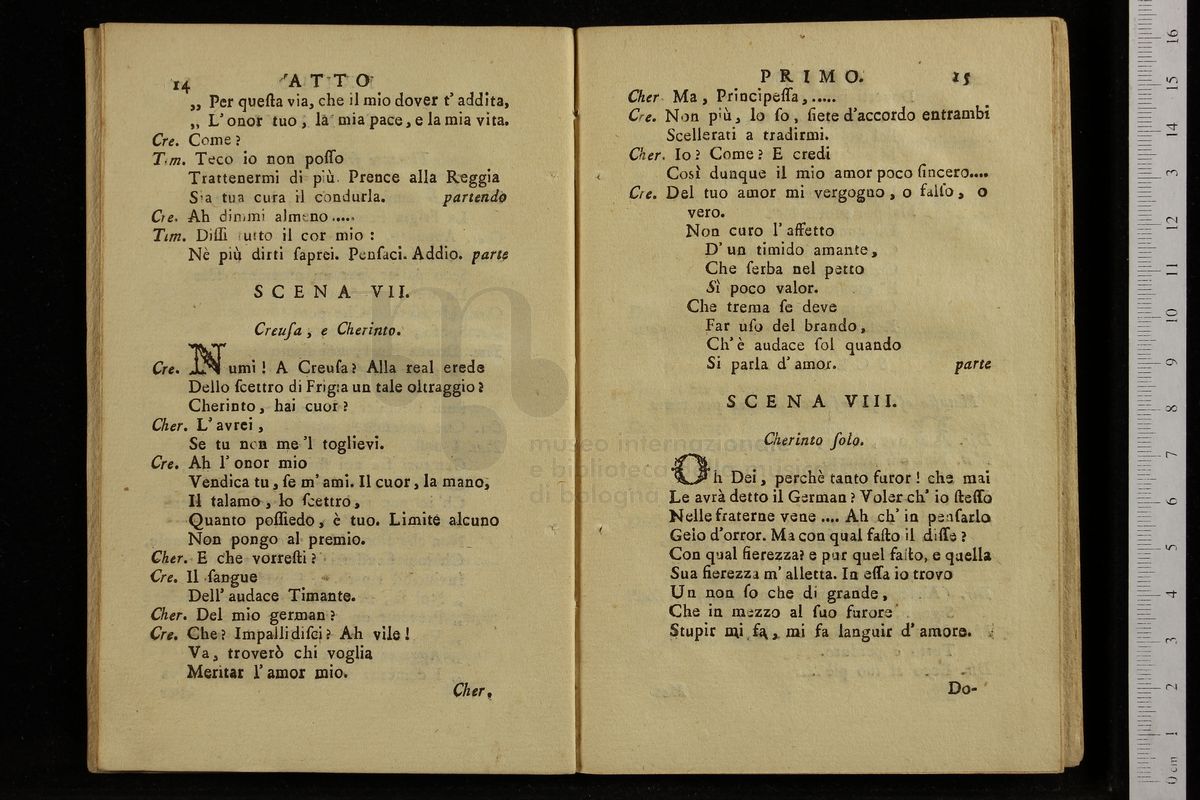 14 ATTO
„ Per queſta via, che il mio dover t' addita,
„ L' onor tuo, la mia pace, e la mia vita.
Cre. Come?
Tim. Teco io non poſſo
Trattenermi di più. Prence alla Reggia
Sia tua cura il condurla. partendo
Cre. Ah dimmi almeno.....
Tim. Diſſi tutto il cor mio :
Nè più dirti ſaprei. Penſaci. Addio. parte
SCENA VII.
Creuſa, e Cherinto.
Cre. Numi ! A Creuſa? Alla real erede
Dello ſcettro di Frigia un tale oltraggio?
Cherinto, hai cuor?
Cher. L' avrei,
Se tu non me 'l toglievi.
Cre. Ah l' onor mio
Vendica tu, ſe m' ami. Il cuor, la mano,
Il talamo, lo ſcettro,
Quanto poſſiedo, è tuo. Limite alcuno
Non pongo al premio.
Cher. E che vorreſti?
Cre. Il ſangue
Dell' audace Timante.
Cher. Del mio german?
Cre. Che? Impallidiſci? Ah vile!
Va, troverò chi voglia
Meritar l' amor mio.
Cher.
PRIMO. 15
Cher. Ma, Principeſſa,.....
Cre. Non più, lo ſo, ſiete d'accordo entrambi
Scellerati a tradirmi.
Cher. Io? Come? E credi
Così dunque il mio amor poco ſincero....
Cre. Del tuo amor mi vergogno, o falſo, o
vero.
Non curo l' affetto
D' un timido amante,
Che ſerba nel petto
Sì poco valor.
Che trema ſe deve
Far uſo del brando,
Ch' è audace ſol quando
Si parla d' amor. parte
SCENA VIII.
Cherinto ſolo.
Oh Dei, perchè tanto furor ! che mai
Le avrà detto il German? Voler ch' io ſteſſo
Nelle fraterne vene .... Ah ch' in penſarlo
Gelo d'orror. Ma con qual faſto il diſſe?
Con qual fierezza? e pur quel faſto, e quella
Sua fierezza m' alletta. In eſſa io trovo
Un non ſo che di grande,
Che in mezzo al ſuo furore
Stupir mi fa, mi fa languir d' amore.
Do-
museo internazionale
e biblioteca della musica
di bologna
0 cm 1 2 3 4 5 6 7 8 9 10 11 12 13 14 15 16